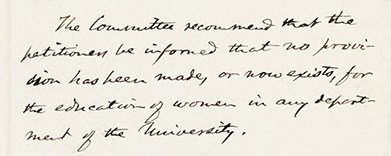 The Committee recommend that the
petitioner be informed that no provi-
sion has been made, or now exists, for
the education of women in any depart-
ment of the University.